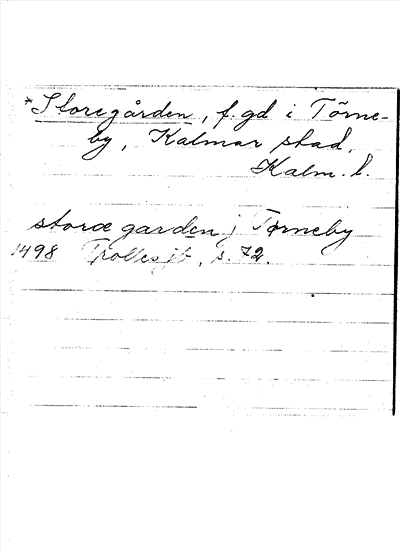 *Storegården, f. gd i Törne-
by, Kalmar stad.
Kalm. l.
storæ garden j Tørneby
1498 Trolles jb, s. 72.